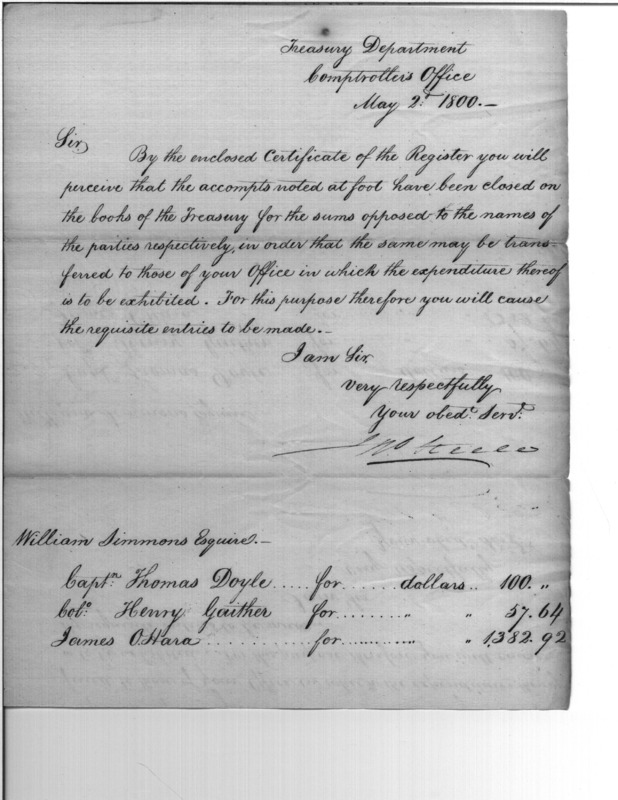 Treasury Department
Comptroller's Office
May 2d 1800.—
Sir,
By the enclosed Certificate of the Register you will
perceive that the accompts noted at foot have been closed on
the books of the Treasury for the sums opposed to the names of
the parties respectively, in order that the same may be trans-
ferred to those of your Office in which the expenditure thereof
is to be exhibited. For this purpose therefore you will cause
the requisite entries to be made.—
I am Sir,
very respectfully
Your obedt. Servt.
Jno Steele
William Simmons Esquire.—
Captn. Thomas Doyle ..... for ....... dollars .. 100. „
Colo. Henry Gaither for ......... „ „ 57.64
James O.Hara .............. for ............ „ 1,382.92